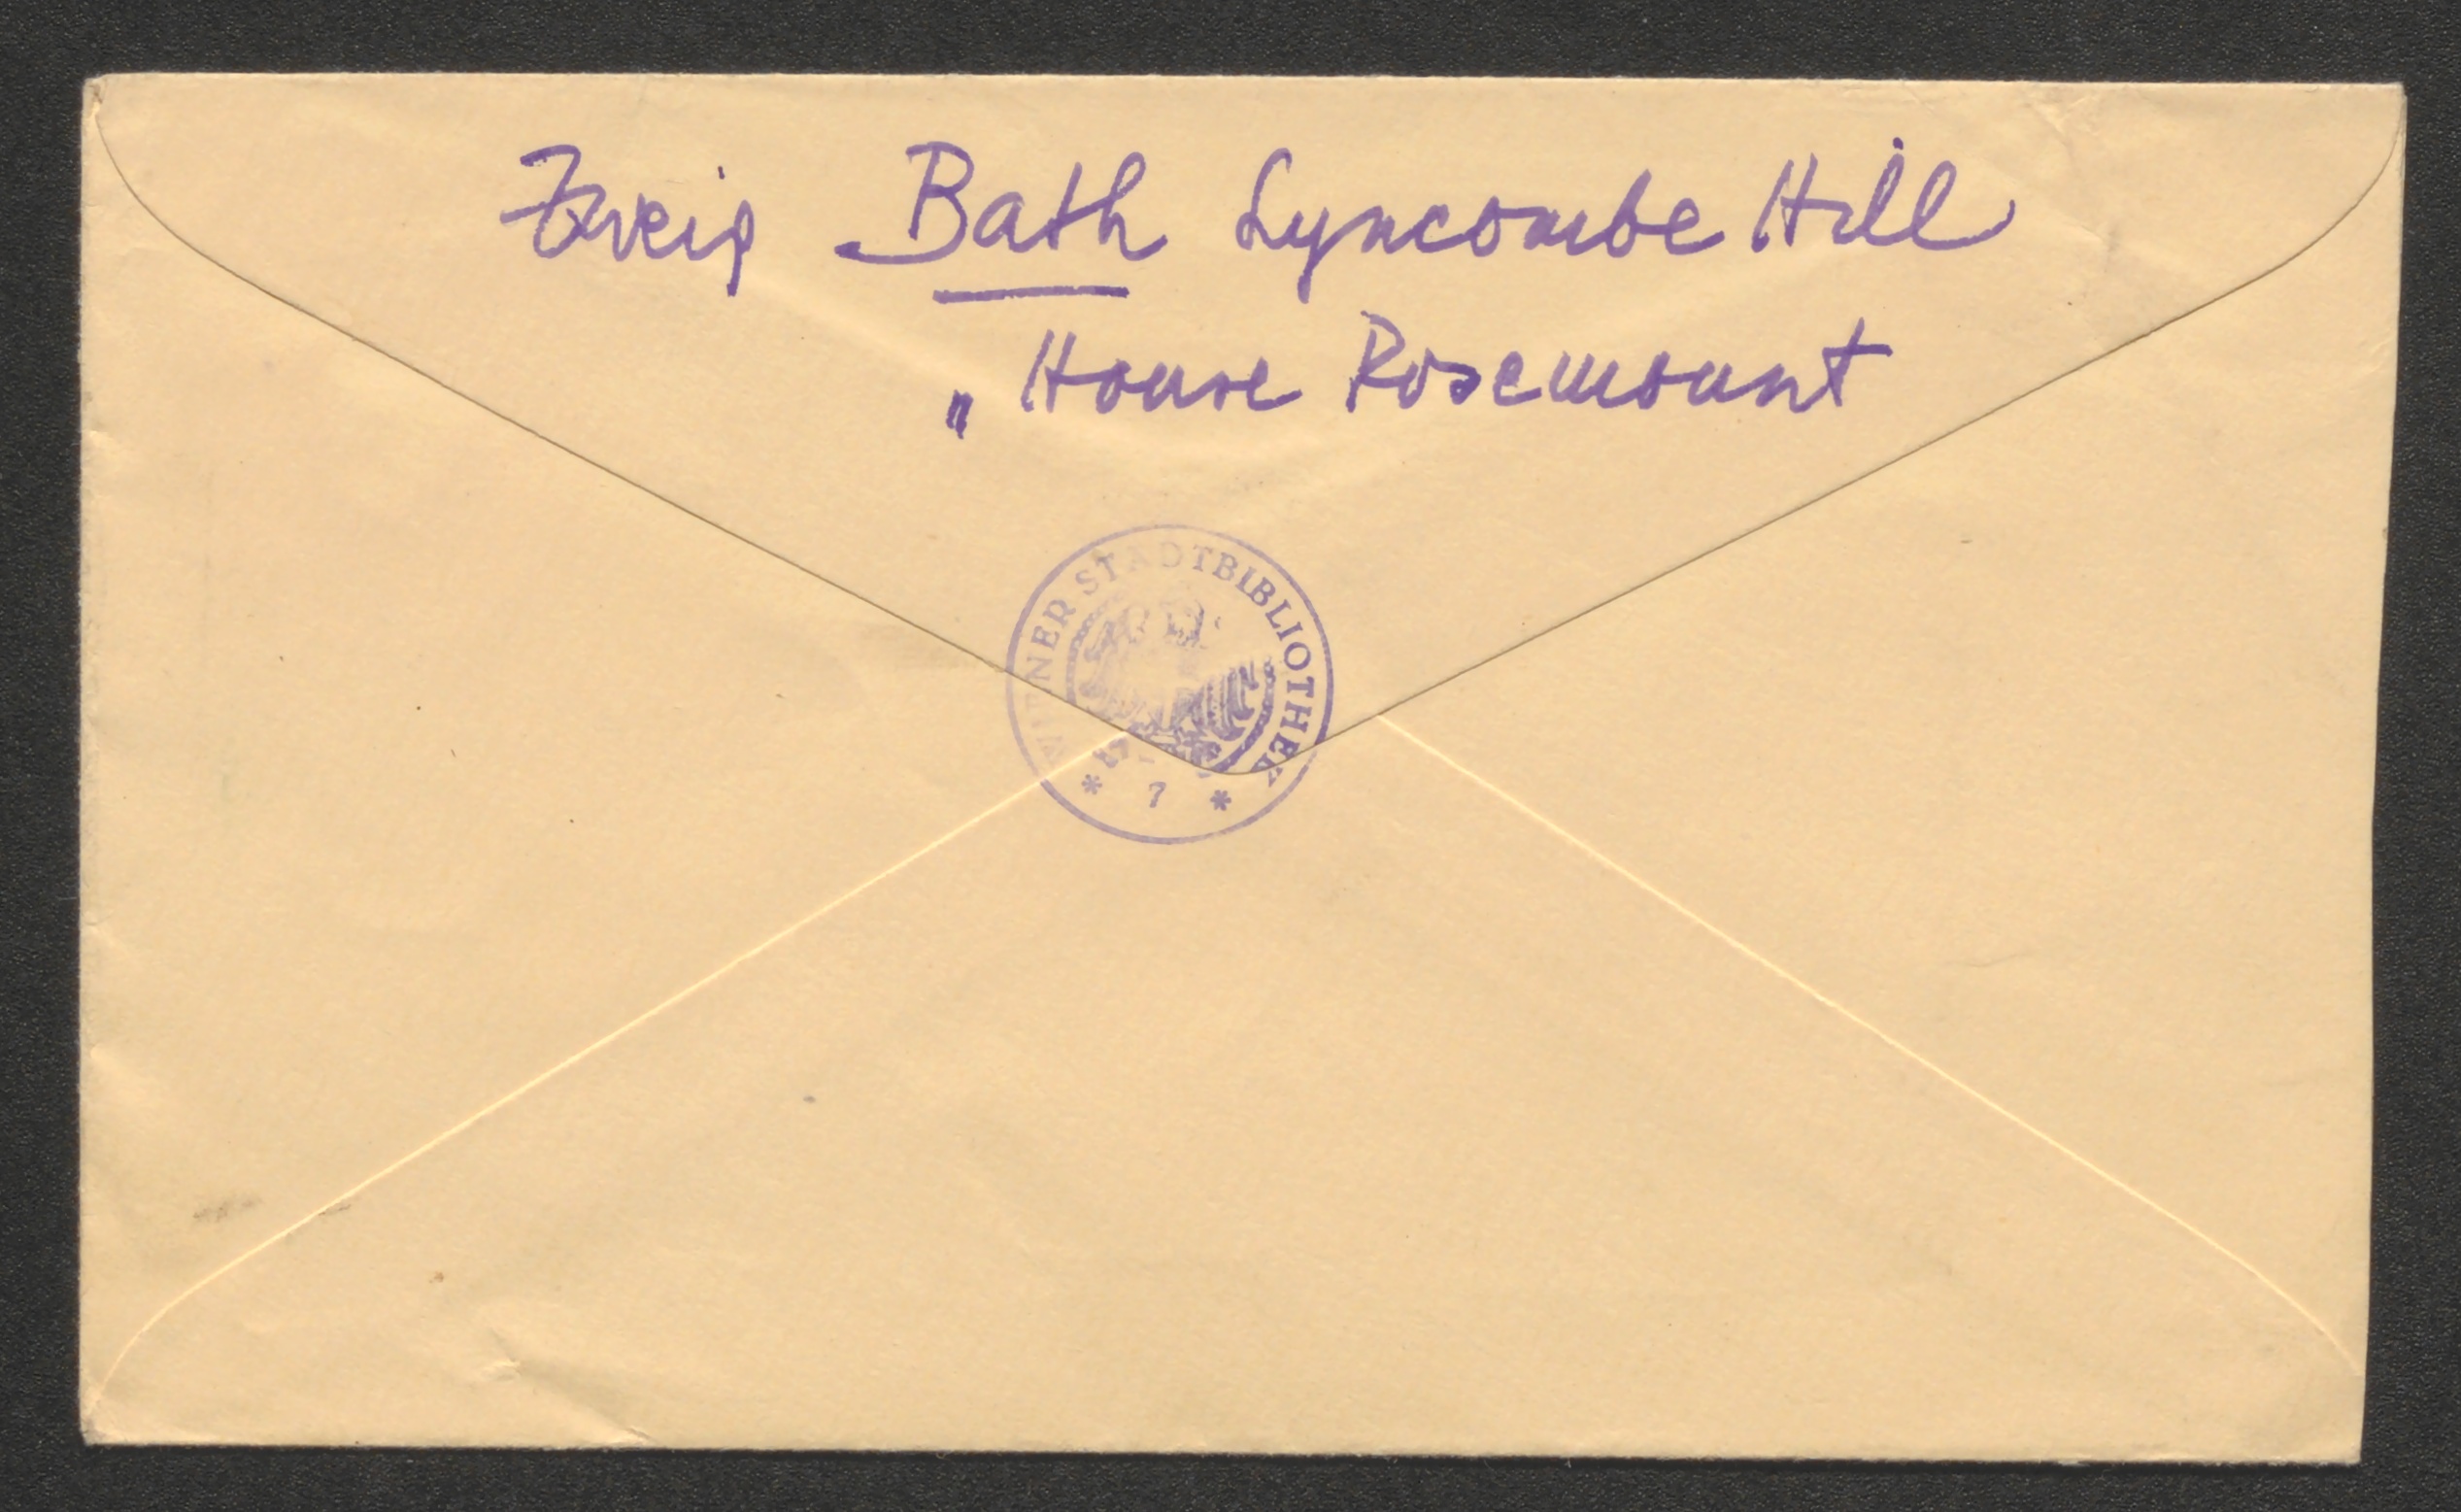 Zweig Bath Lyncombe Hill
„ House Rosemount
WIENER STADTBIBLIOTHEK
* 7 *